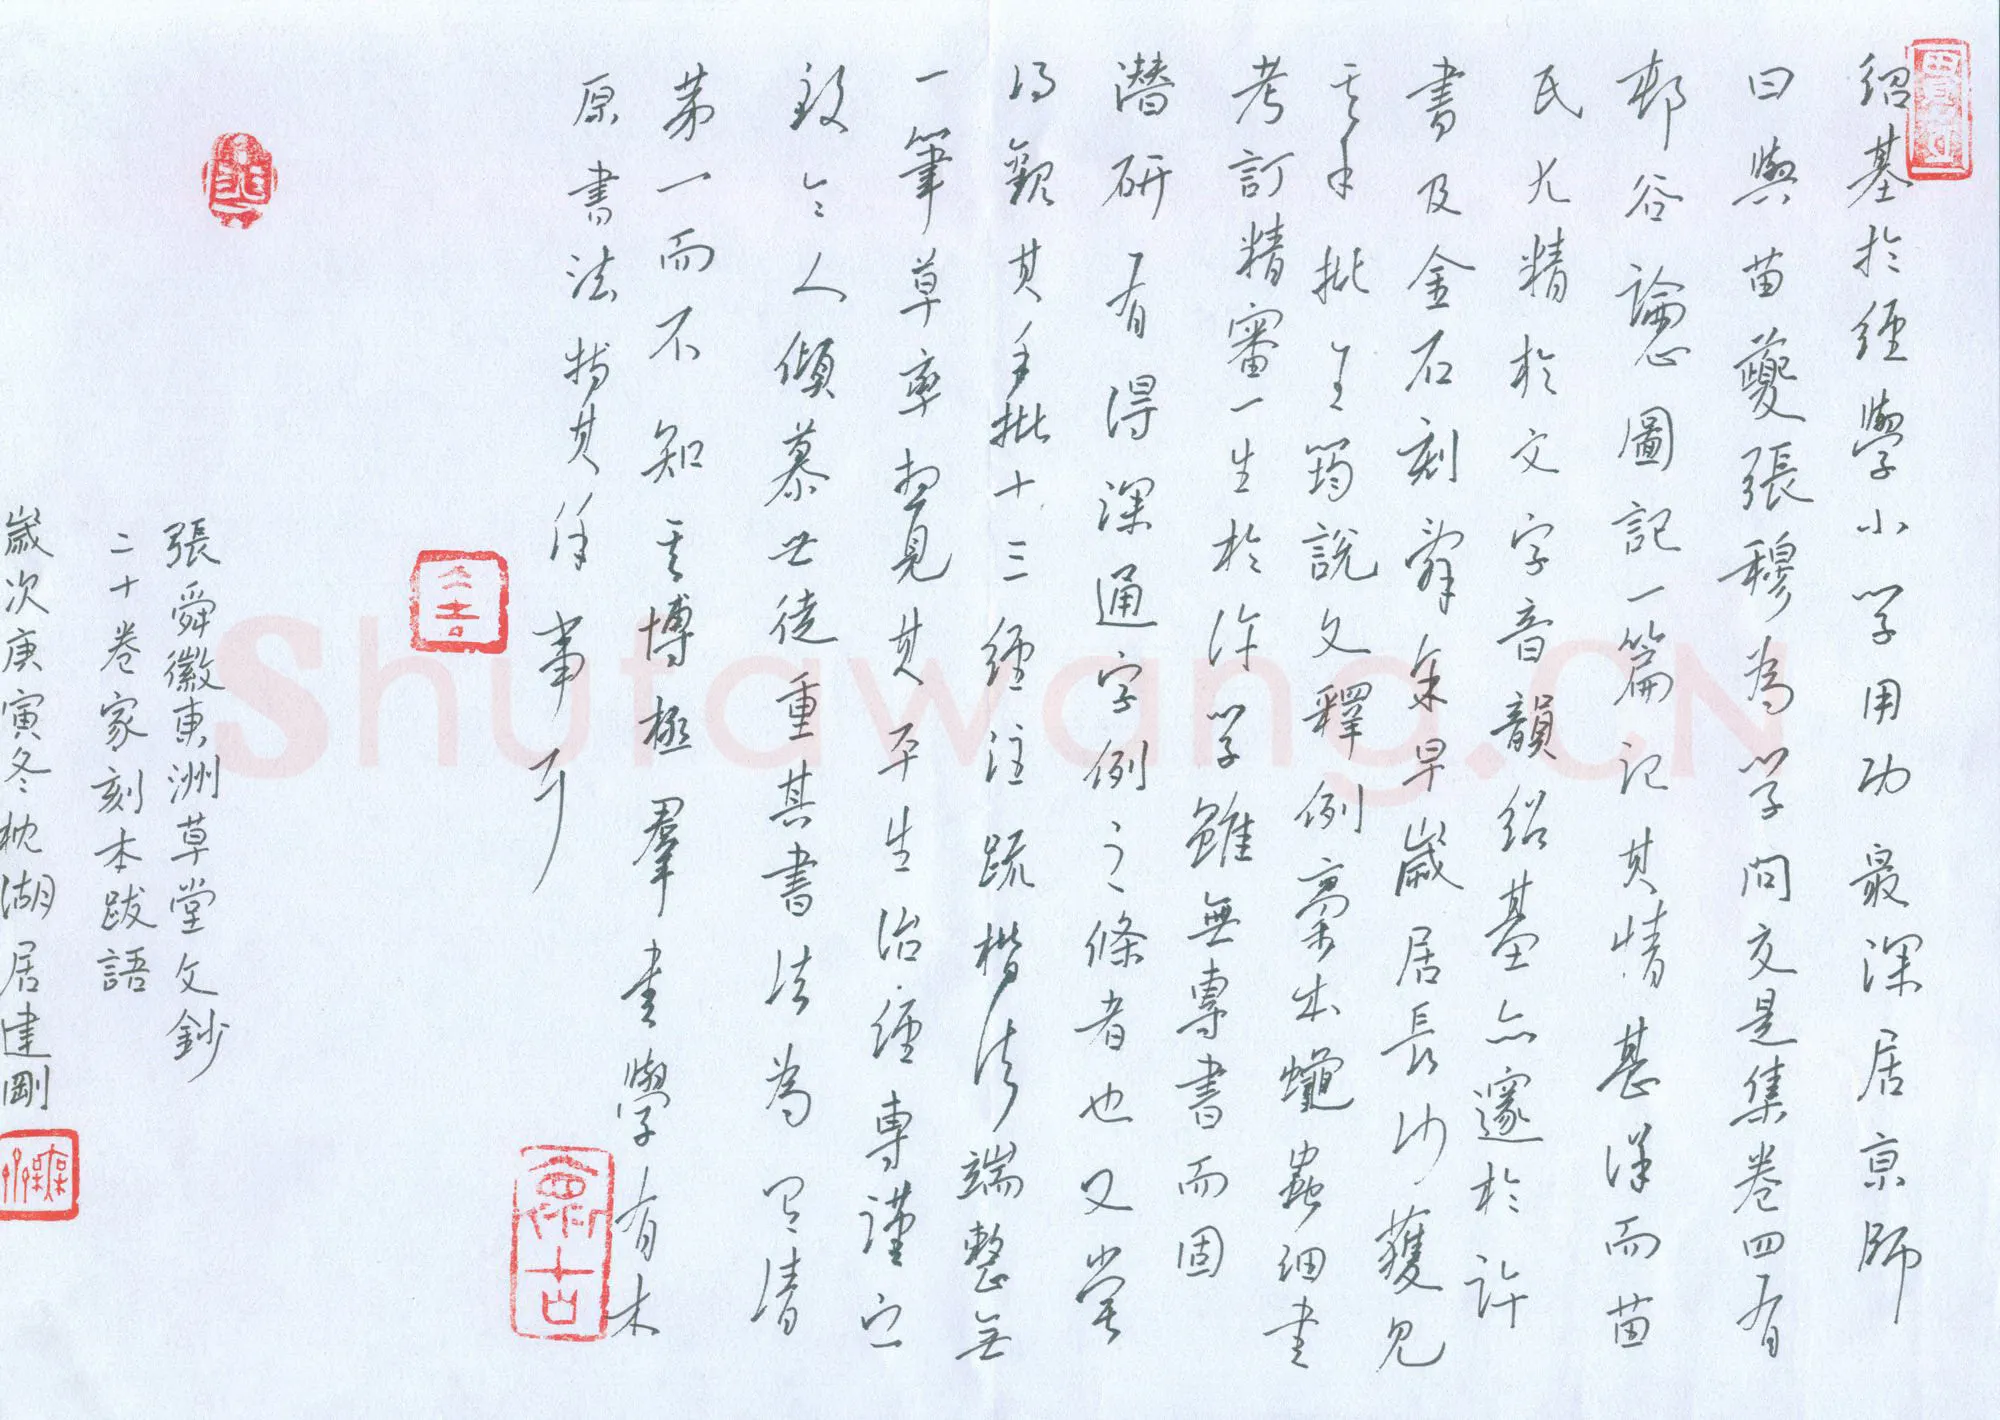 紹基於經學小學用功最深居京師
曰與苗夔張穆為學問交是集卷四有
邨谷論心圖記一篇記其情甚詳而苗
氏尤精於文字音韻紹基亦邃於許
書及金石刻辭余早歲居長沙獲見
其手批王筠說文釋例稾本蠅蟲細書
考訂精審一生於許學雖無專書而固
潛研有得深通字例之條者也又嘗
得觀其手批十三經注疏楷法端整無
一筆草率想見其平生治經專謹之
致令人傾慕世徒重其書法為有清
第一而不知其博極羣書學有本
原書法特其餘事耳
張舜徽東洲草堂文鈔
二十卷家刻本跋語
歲次庚寅冬枕湖居建剛
Shufawang.CN